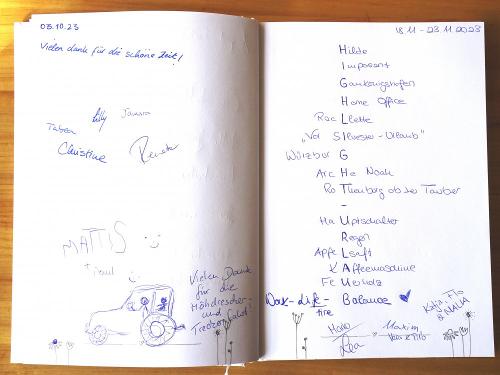 03.10.23
Vielen dank für die schöne Zeit!
Lilly
Tabea
Christine
Renate
MATTIS
Vielen Dank
für die
Mähdrescher-
und
Treckerfahrt
18.11 - 23.11.2023
Hilde
Imposant
Gaukönigshofen
Home Office
RacLlette
"Vor SIlvester-Urlaub"
WürzburG
ArcHe Noah
RoThenburg ob der Tauber
-
HaUptschalter
Regen
ApfeLsaft
KAffeemaschine
FeUerholz
Work-Life-Balance
time
Katja, Flo
& MALIA
Maxim